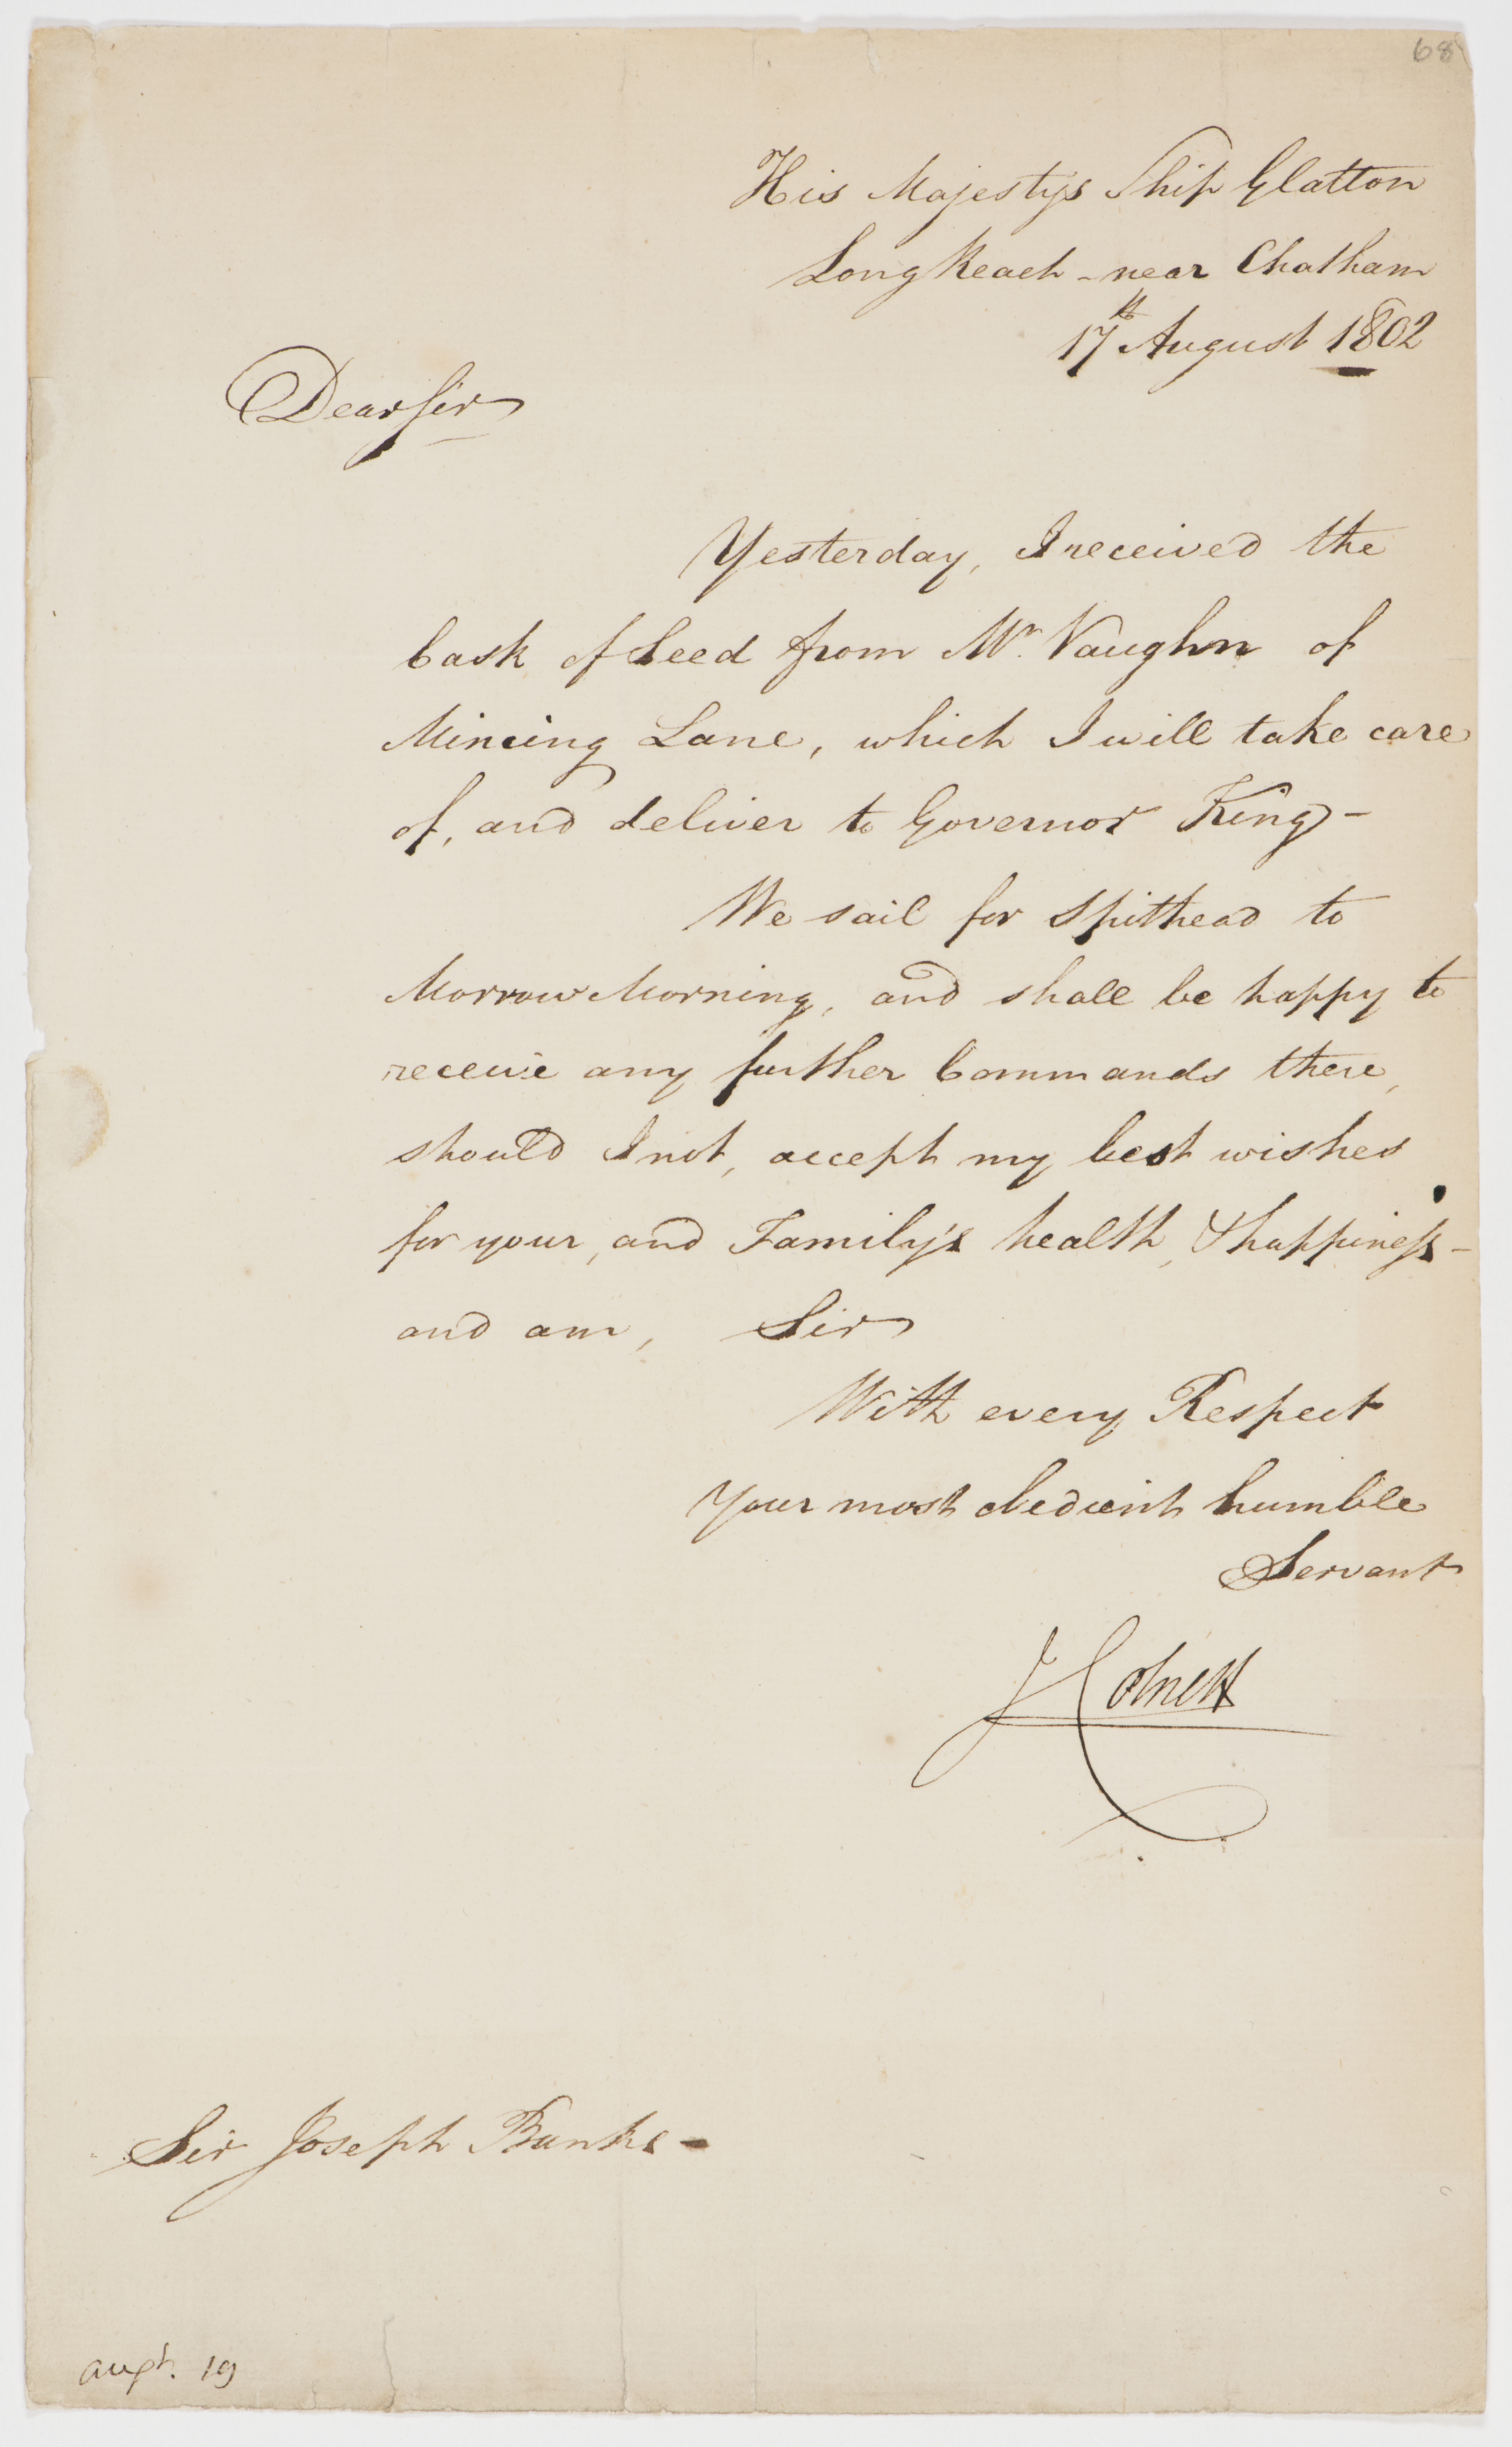 68
His Majestys Ship Glatton
Long Reach - near Chatham
17th August 1802
Dear Sir
Yesterday, I received the
Cask of Seed from Mr. Vaughn of
Mincing Lane, which I will take care
of, and deliver to Governor King -
We sail for Spithead to
Morrow Morning, and shall be happy to
receive any further Commands there,
should I not, accept my best wishes
for your, and Family's health, & happiness -
and am, Sir
With every Respect
Your most obedient humble
Servant
J Colnett
Sir Joseph Banks -
Augt. 19